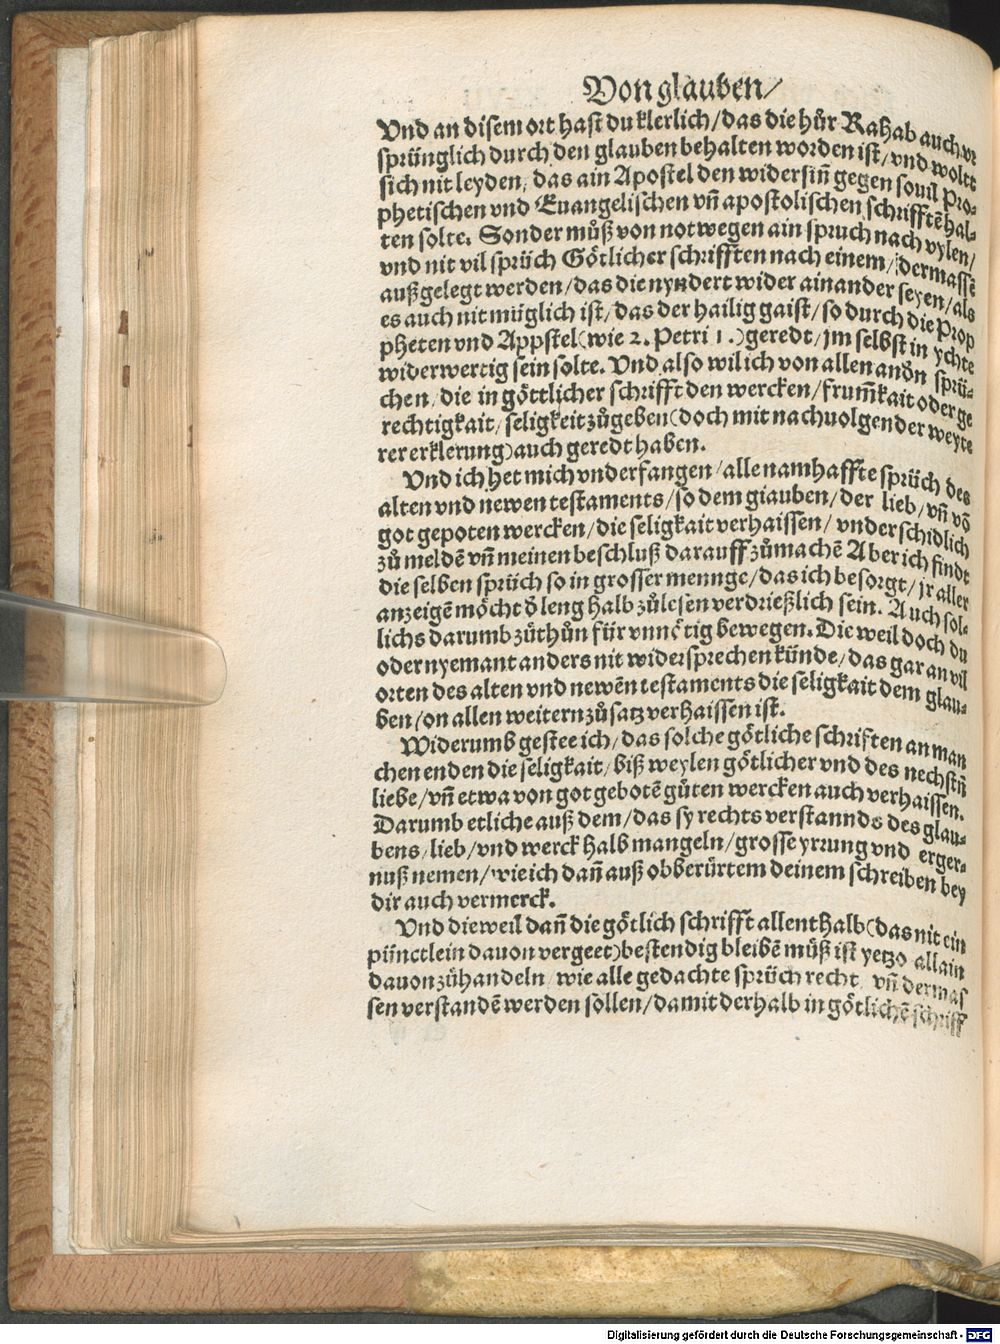 Von glauben/
Vnd an disem ort hast du klerlich/das die hůr Rahab auch vr
sprünglich durch den glauben behalten worden ist/vnd woltt
sich nit leyden, das ain Apostel den widersiñ gegen souil Pro⸗
phetischen vnd Euangelischen vñ apostolischen schrifftē hal⸗
ten solte. Sonder můß von not wegen ain spruch nach vylen/
vnd nit vil sprüch Götlicher schrifften nach einem/dermassē
außgelegt werden/das die nyndert wider ainander seyen/als
es auch nit müglich ist/das der hailig gaist/so durch die Prop
pheten vnd Appstel(wie 2. Petri 1.)geredt/jm selbst in ychte
widerwertig sein solte. Vnd also wil ich von allen andn sprü⸗
chen/die in göttlicher schrifft den wercken/frum̃kait oder ge
rechtigkait/seligkeit zůgeben(doch mit nachuolgender weyte
rer erklerung)auch geredt haben.
Vnd ich het mich vnderfangen/alle namhaffte sprüch des
alten vnd newen testaments/so dem giauben/der lieb/vñ vō
got gepoten wercken/die seligkait verhaissen/vnderschidlich
zů meldē vñ meinen beschluß darauff zůmachē Aber ich findt
die selben sprüch so in grosser mennge/das ich besorgt/jr aller
anzeigē möcht d leng halb zůlesen verdrießlich sein. Auch sol⸗
lichs darumb zůthůn für vnnötig bewegen. Die weil doch du
oder nyemant anders nit widersprechen künde/das gar an vil
orten des alten vnd newēn testaments die seligkait dem glau⸗
ben/on allen weitern zůsatz verhaissen ist.
Widerumb gestee ich/das solche götliche schriften an man
chen enden die seligkait/biß weylen götlicher vnd des nechstñ
liebe/vñ etwa von got gebotē gůten wercken auch verhaissen.
Darumb etliche auß dem/das sy rechts verstannds des glau⸗
bens/lieb/vnd werck halb mangeln/grosse yrrung vnd erger⸗
nuß nemen/wie ich dañ auß obberürtem deinem schreiben bey
dir auch vermerck.
Vnd dieweil dañ die götlich schrifft allenthalb(das nit ein
pünctlein dauon vergeet)bestendig bleibē můß ist yetzo allain
dauon zůhandeln/wie alle gedachte sprüch recht vñ dermas
sen verstandē werden sollen/damit derhalb in götlichē schriff
Digitalisierung gefördert durch die Deutsche Forschungsgemeinschaft - DFG